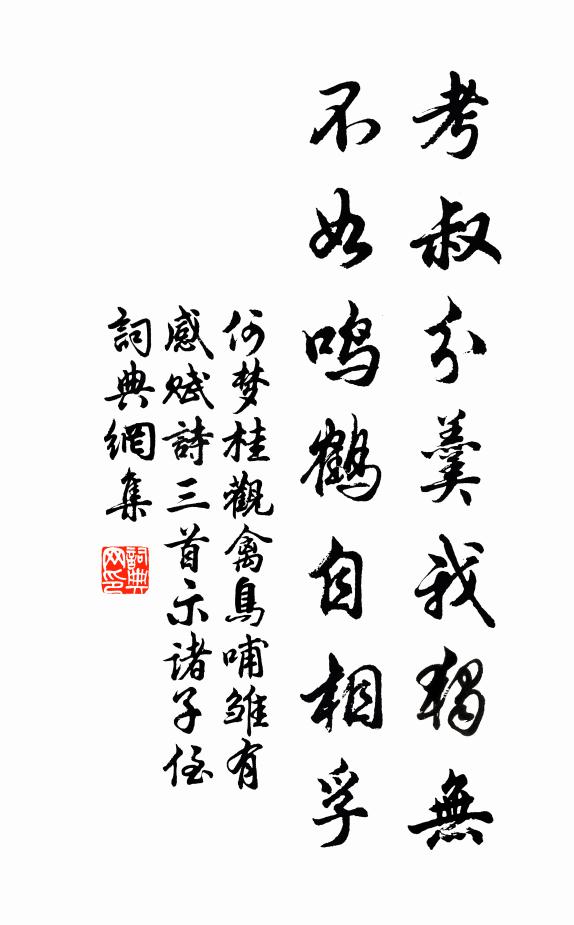 考叔分羹我獨無
不如鳴鶴自相孚
何梦桂觀禽鳥哺雏有
感赋詩三首示诸子侄
詞典網集
詞典网印